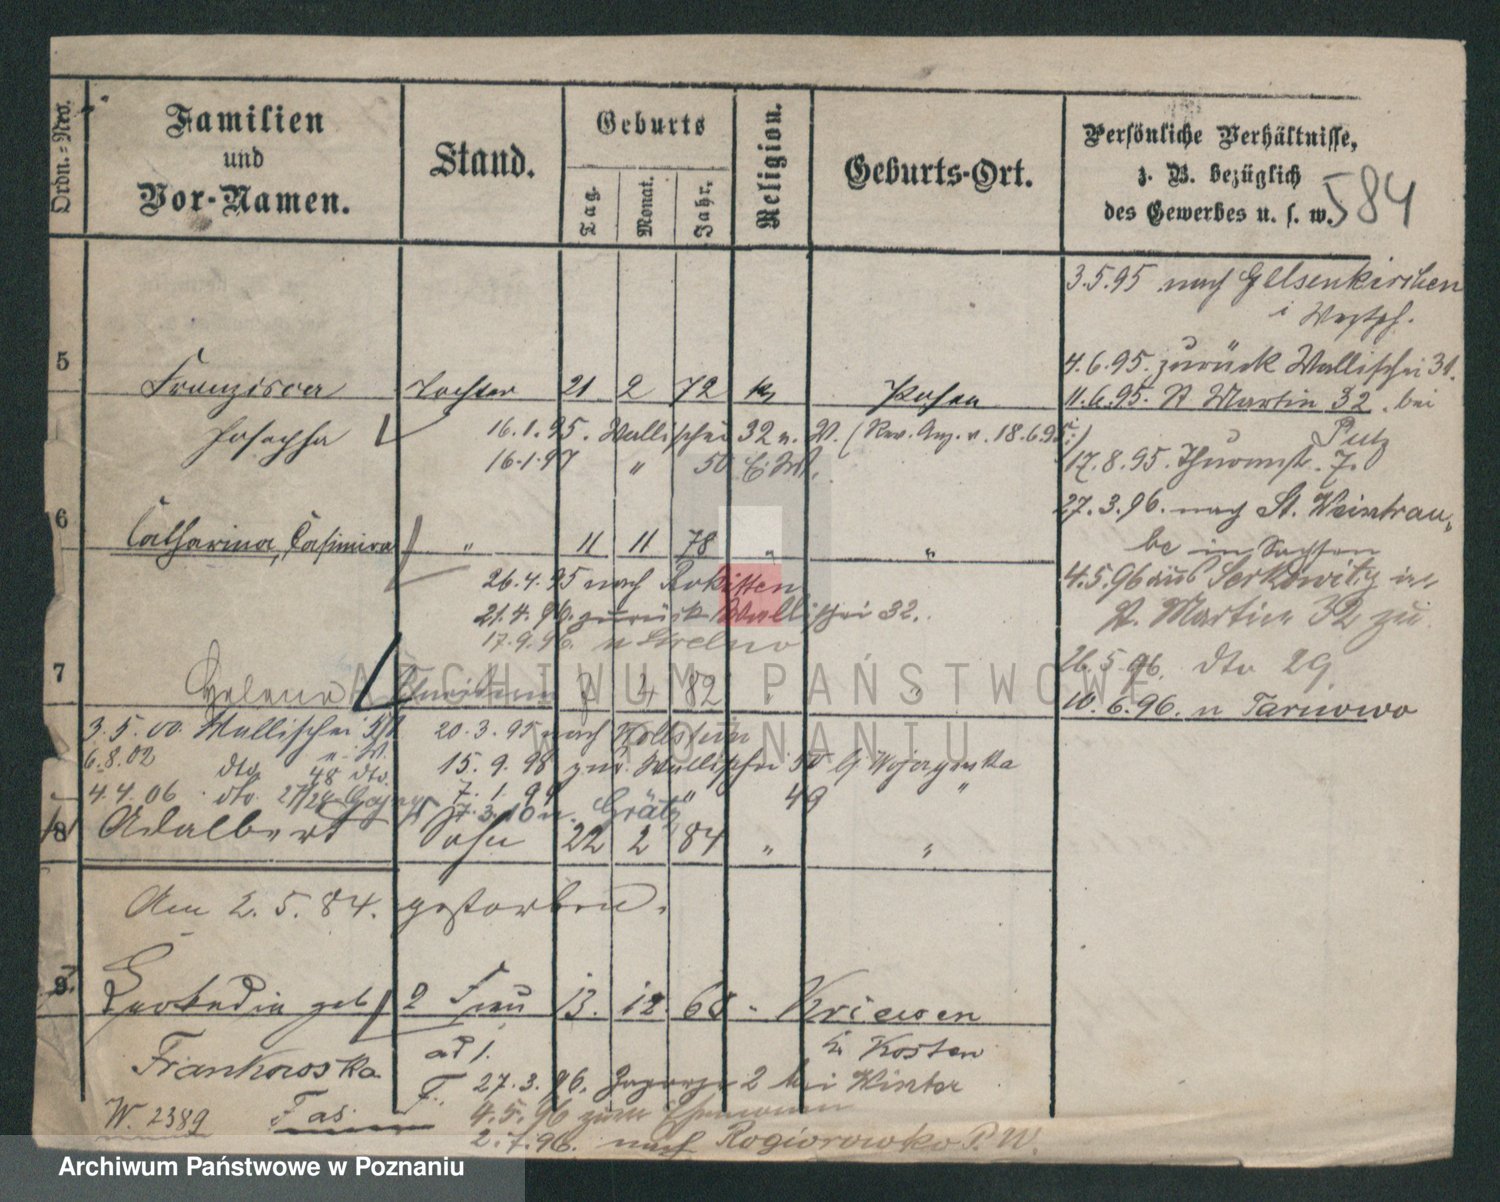 Ordn.-Nro.
Familien
und
Vor-Namen.
Stand.
Geburts
Tag.
Monat.
Jahr.
Religion.
Geburts-Ort.
Persönliche Verhältnisse,
z. B. bezüglich
des Gewerbes u. s. w.
584
3.5.95 nach Gelsenkirchen
i Westph.
4.6.95. zurück Wallischei 31.
5 Franzisca Tochter 21 2 72 k Posen
11.6.95. St Martin 32. bei
Josepha 16.1.95. Wallischei 32 n. W. (Rev. Anz. v. 18.6.95.)
Putz
16.1.97 " 50 b. W.
17.8.95. Thurmstr. 7.
27.3.96. nach St. Weintrau-
6 Catharina, Casimira " 11 11 78 " "
be in Sachsen
26.4.95 nach Rokitten
4.5.96 aus Serkowitz in
21.4.96. zurück Wallischei 32.
St. Martin 32 zu
17.9.96. n Strelno
26.5.96. dto 29.
7 Helena 7 4 82 " "
10.6.96. n Tarnowo
3.5.00. Wallischei
20.3.95 nach Wollstein
6.8.02 dto 48 dto.
15.9.98 zur. Wallischei 50 b
4.4.06 dto. 27/28
7.1.99 " 49 "
7.3.10 n. Grätz
8 Adalbert Sohn 22 2 84 " "
Am 2.5.84. gestorben.
9. Leokadia geb 2 Frau 13. 12. 68 - Kriewen
Frankowska ad 1. Kr Kosten
F. 27.3.96. 2 bei Winter
W. 2389 Fas.
4.5.96 zum Ehemann
2.7.96. nach Rogierowko P. W.
ARCHIWUM PAŃSTWOWE
W POZNANIU
Archiwum Państwowe w Poznaniu